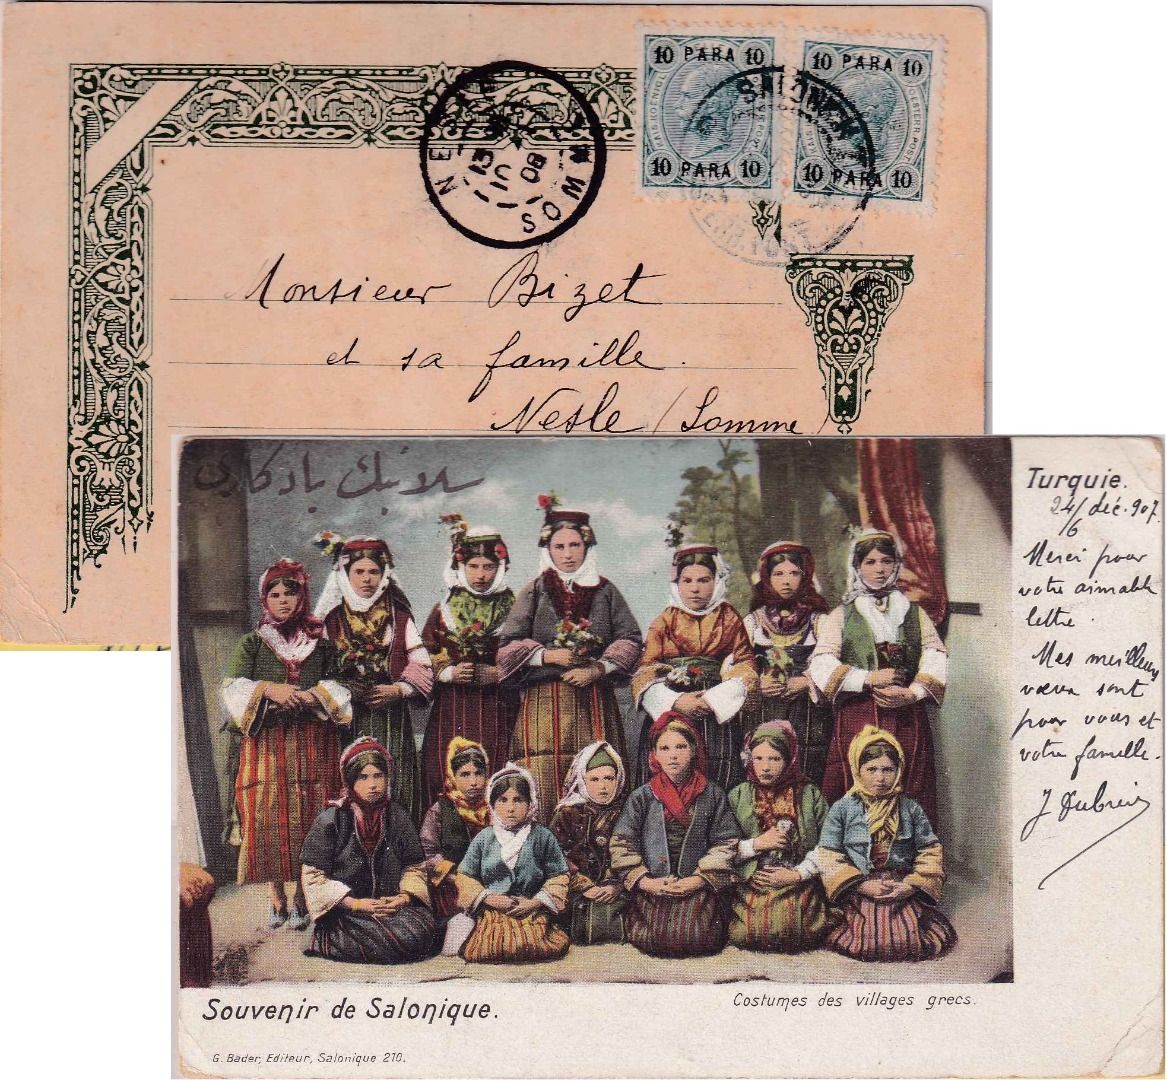 10 PARA 10
10 PARA 10
10 PARA 10
10 PARA 10
SOMME
Monsieur Bizet
et sa famille.
Nesle (Somme)
سلانيك يادكارى
Turquie.
24/6 déc. 907.
Merci pour
votre aimable
lettre.
Mes meilleurs
vœux sont
pour vous et
votre famille.
Souvenir de Salonique.
Costumes des villages grecs.
G. Bader, Editeur, Salonique 210.